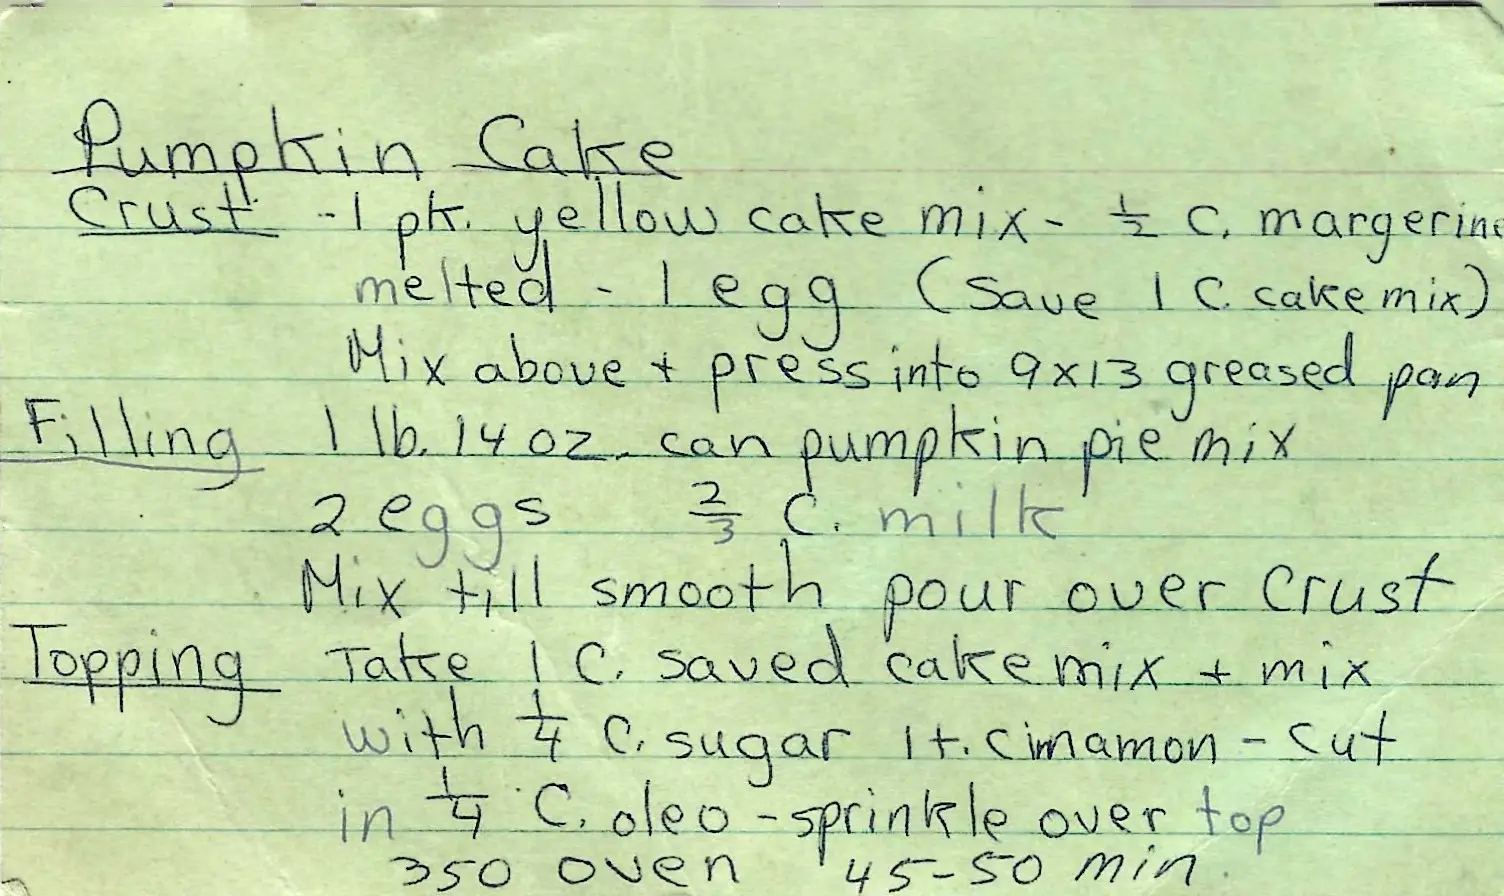 Pumpkin Cake
Crust - 1 pk. yellow cake mix - ½ C. margerine
melted - 1 egg (Save 1 C. cake mix)
Mix above + press into 9x13 greased pan
Filling 1 lb. 14 oz. can pumpkin pie mix
2 eggs ⅔ C. milk
Mix till smooth pour over Crust
Topping Take 1 C. saved cake mix + mix
with ¼ C. sugar 1 t. cinnamon - cut
in ¼ C. oleo - sprinkle over top
350 oven 45-50 min.